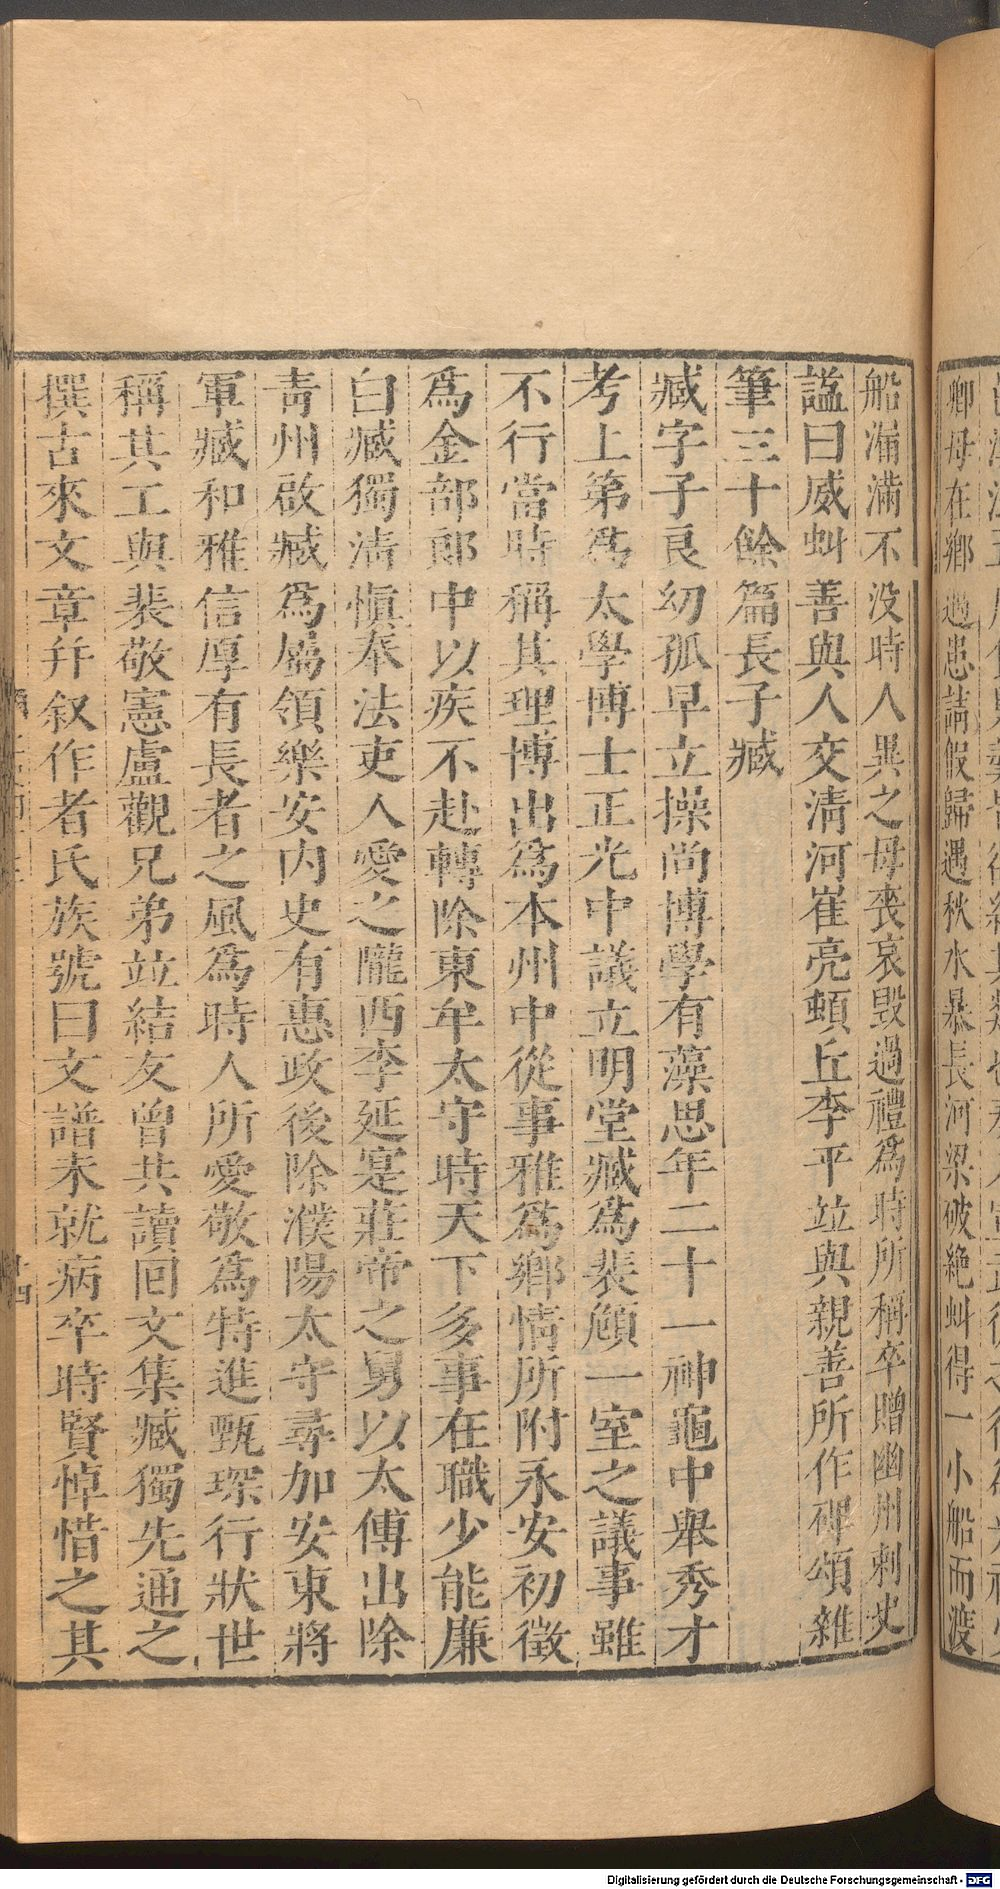 卿母在鄉遇患請假歸遇秋水暴長河梁破絶虯得一小船而渡
船漏滿不没時人異之母喪哀毁過禮爲時所稱卒贈幽州刺史
諡曰威虯善與人交清河崔亮頓丘李平竝與親善所作碑頌雜
筆三十餘篇長子臧
臧字子良幼孤早立操尚博學有藻思年二十一神龜中舉秀才
考上第爲太學博士正光中議立明堂臧爲裴頠一室之議事雖
不行當時稱其理博出爲本州中從事雅爲鄉情所附永安初徵
爲金部郎中以疾不赴轉除東牟太守時天下多事在職少能廉
白臧獨清愼奉法吏人愛之隴西李延寔莊帝之舅以太傅出除
靑州啟臧爲屬領樂安内史有惠政後除濮陽太守尋加安東將
軍臧和雅信厚有長者之風爲時人所愛敬爲特進甄琛行狀世
稱其工與裴敬憲盧觀兄弟竝結友曾共讀回文集臧獨先通之
撰古來文章幷叙作者氏族號曰文譜未就病卒時賢悼惜之其
十四
Digitalisierung gefördert durch die Deutsche Forschungsgemeinschaft - DFG